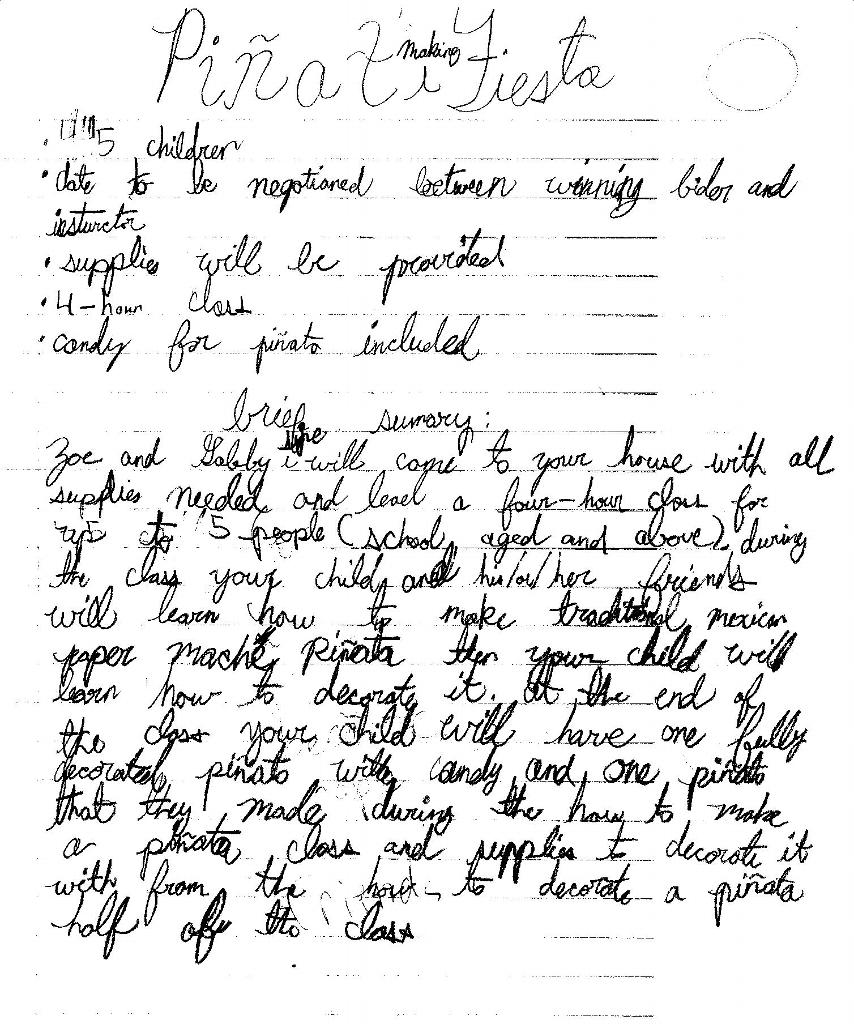 Piñata making Fiesta
• 5 children
• date to be negotianed between winning bidor and
insturctor
• supplies will be provided
• 4-hour class
• candy for piñata included
brief sumary:
Zoe and Gabby will come to your house with all
supplies needed and lead a four-hour class for
up to 5 people (school aged and above). during
the class your child and his/or/her friends
will learn how to make traditional mexican
paper maché Piñata then your child will
learn how to decorate it. At the end of
the class your child will have one fully
decorated piñata with candy and one piñata
that they made during the how to make
a piñata class and supplies to decorate it
with from the how-to decorate a piñata
half of the class